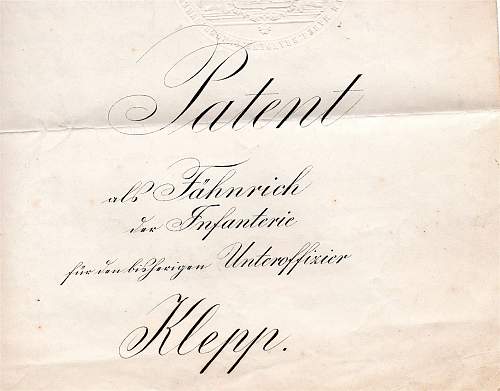 Patent
als Fähnrich
der Infanterie
für den bisherigen Unteroffizier
Klepp.